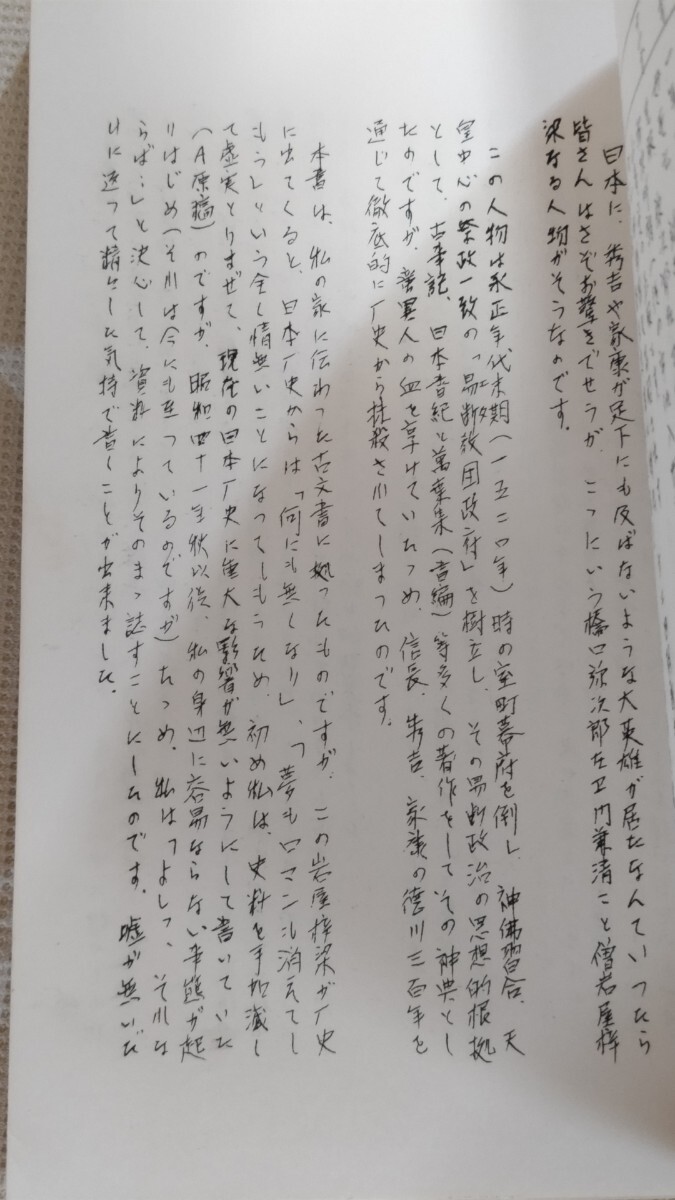 日本に、秀吉や家康が足下にも及ばないような大英雄が居たなんていつたら
皆さんはさぞお驚きでせうが、こゝにいう橋口弥次郎左卫门兼清こと僧岩屋梓
梁なる人物がそうなのです。
この人物は永正年代末期(一五二〇年)時の室町幕府を倒し、神佛習合、天
皇中心の祭政一致の「易断政団政府」を樹立し、その易断政治の思想的根拠
として、古事記、日本書紀と萬葉集(首編)等多くの著作をしてその神典とし
たのですが、異人の血を享けていたゝめ、信長、秀吉、家康の徳川三百年を
通じて徹底的に歴史から抹殺されてしまつたのです。
本書は、私の家に伝わつた古文書に拠つたものですが、この岩屋梓梁が歴史
に出てくると、日本歴史からは「何にも無くなり」、「夢もロマンも消えてし
もう」という全く情無いことになつてしもうため、初め私は、史料を手加減し
て虚実とりまぜて、現在の日本歴史に重大な影響が無いようにして書いていた
(A原稿)のですが、昭和四十一年秋以後、私の身辺に容易ならない事態が起
りはじめ(それは今にも至つているのですが)たゝめ、私は「よしつ、それな
らば…」と決心して、資料によりそのまゝ誌すことにしたのです。嘘が無いだ
けに返つて精々した気持で書くことが出来ました。